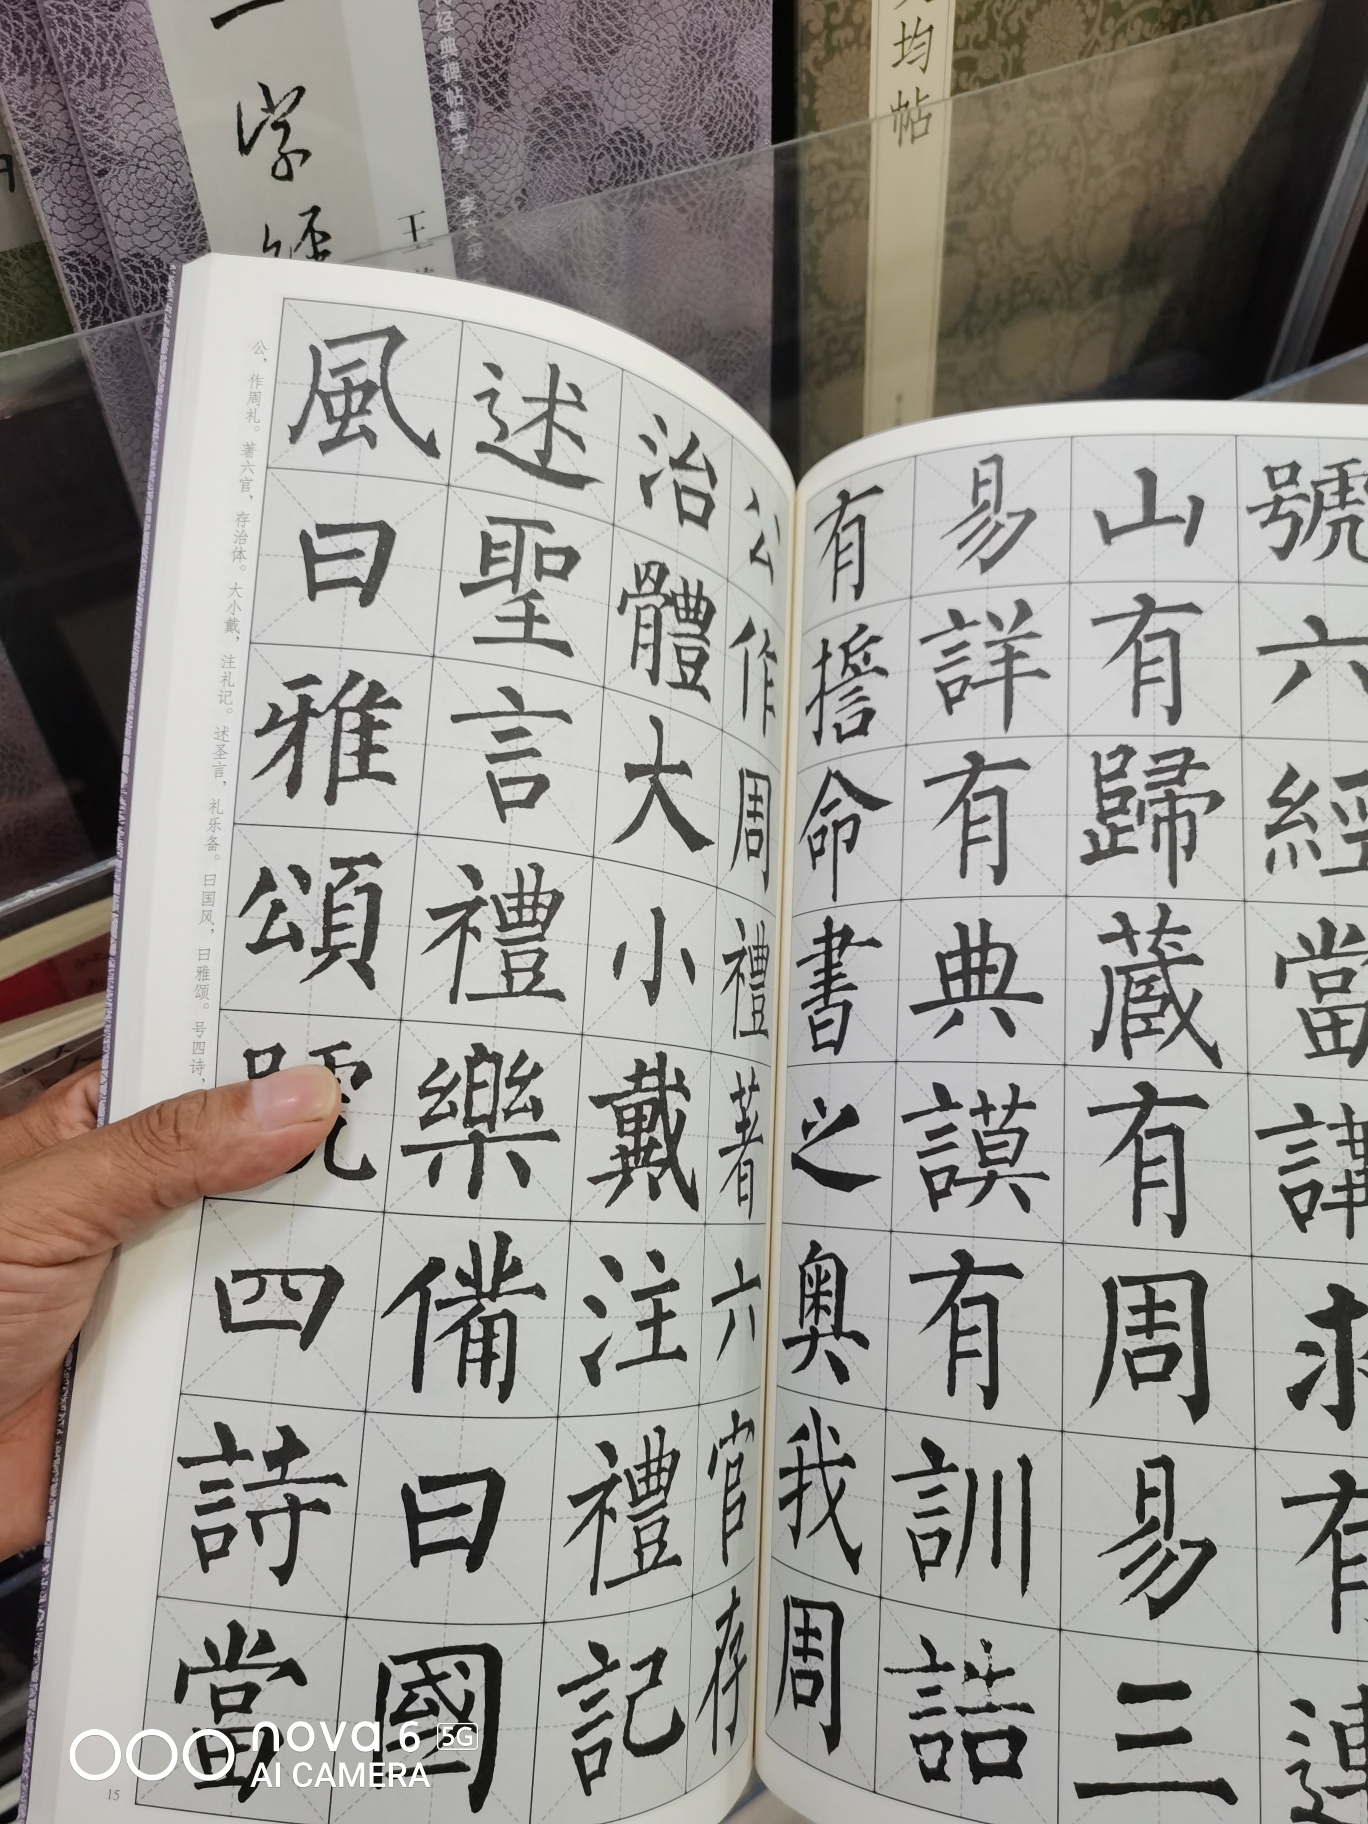 字經
王
经典碑帖集字
均帖
號六經當講求有連
山有歸藏有周易三
易詳有典謨有訓誥
有誓命書之奧我周
公作周禮著六官存
治體大小戴注禮記
述聖言禮樂備曰國
風曰雅頌號四詩當
公，作周礼。著六官，存治体。大小戴，注礼记。述圣言，礼乐备。曰国风，曰雅颂。号四诗，
15
nova 6 5G
AI CAMERA